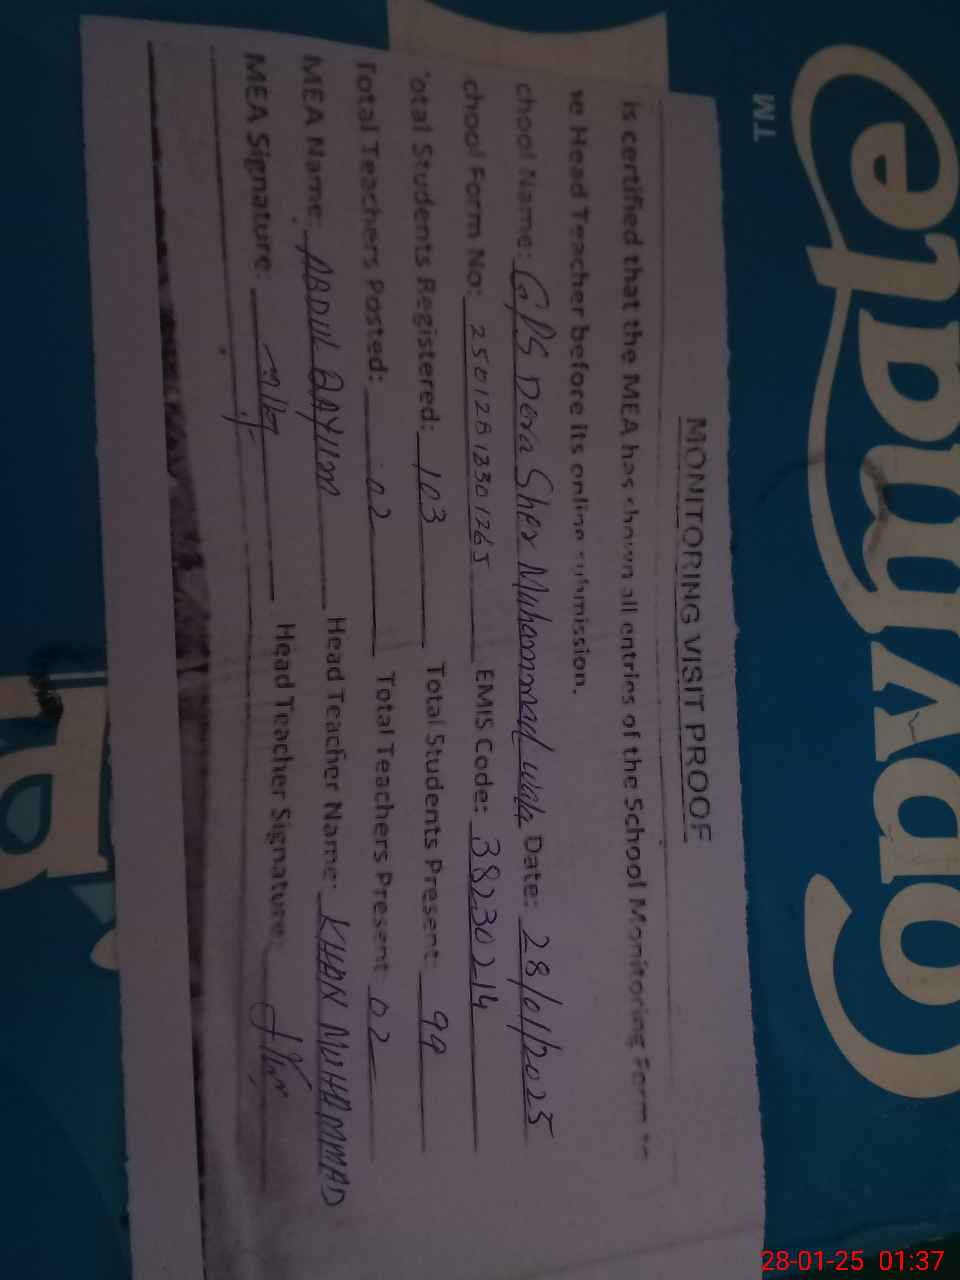 MONITORING VISIT PROOF
is certified that the MEA has shown all entries of the School Monitoring Form to
he Head Teacher before its online submission.
chool Name: GPS Dera Sher Muhammad wala Date: 28/01/2025
chool Form No: 25012813301265 EMIS Code: 38230214
otal Students Registered: 103 Total Students Present: 99
Total Teachers Posted: 02 Total Teachers Present 02
MEA Name: ABDUL QAYUM Head Teacher Name: KHAN MUHAMMAD
MEA Signature: Head Teacher Signature:
TM
28-01-25 01:37